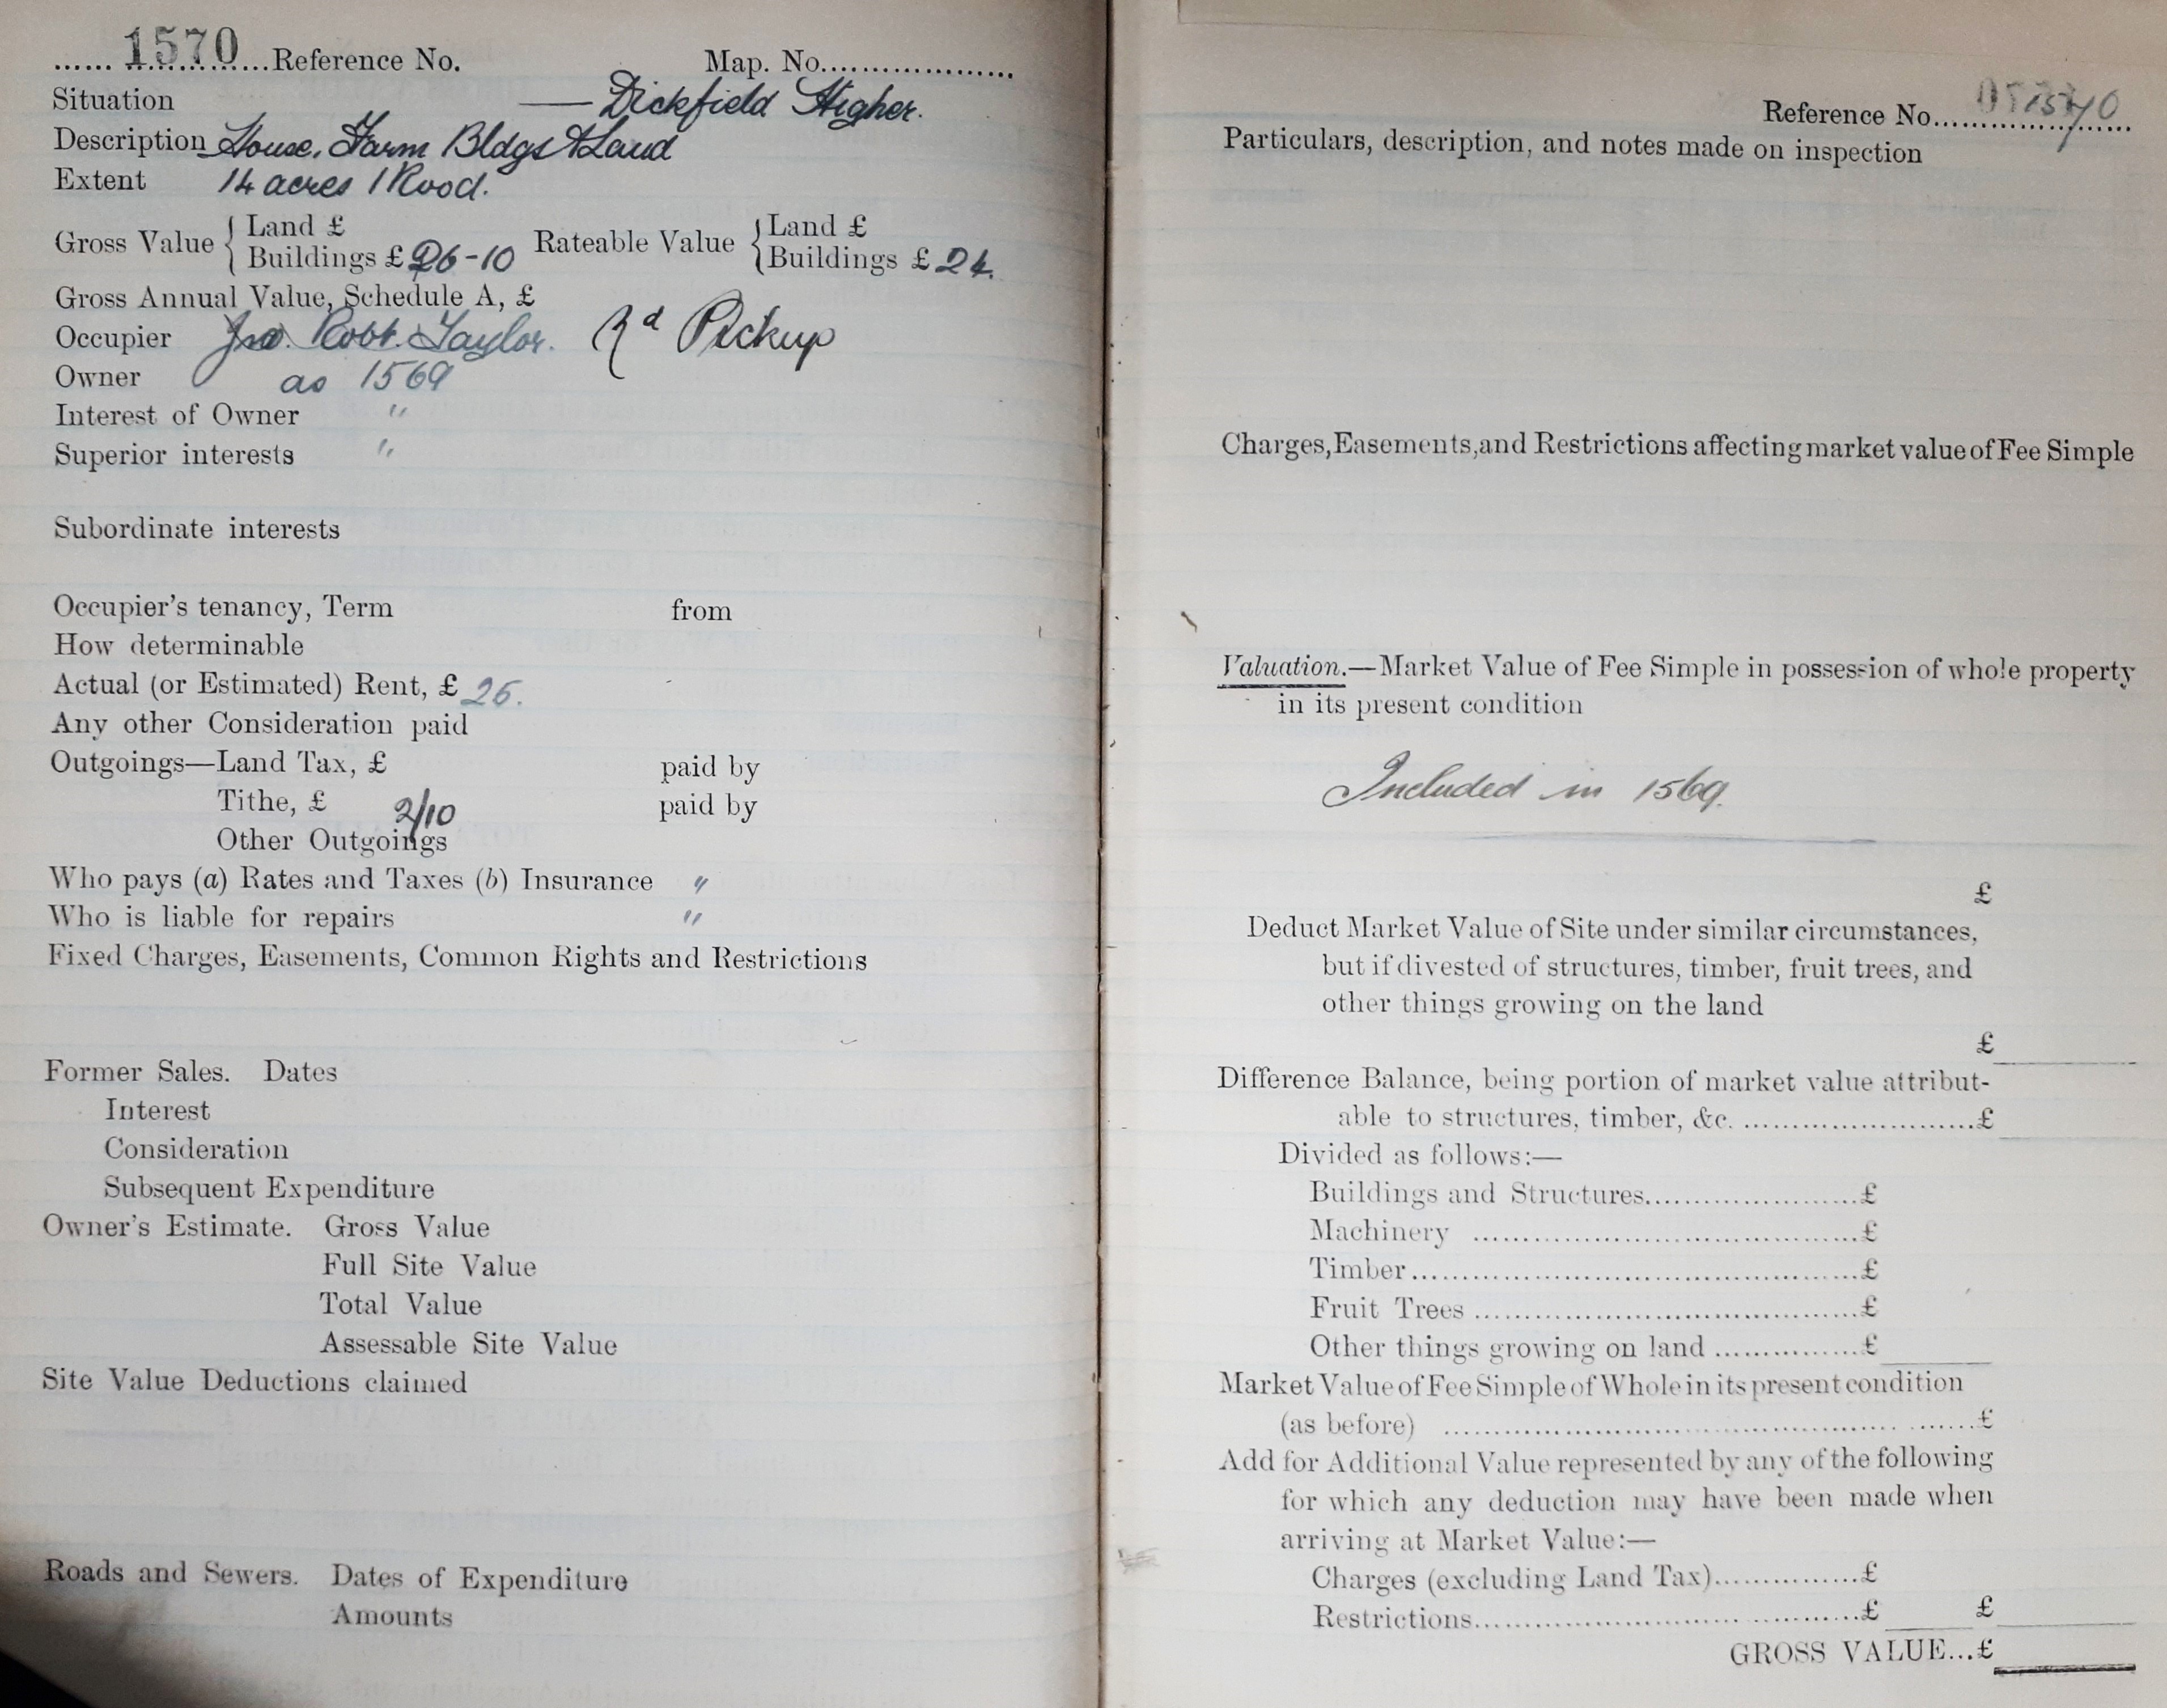 ...... 1570 ...Reference No. Map. No.....................
Situation — Dickfield Higher.
Description House, Farm Bldgs & Land
Extent 14 acres 1 Rood.
Gross Value { Land £ Rateable Value { Land £
Buildings £ 26-10 Buildings £ 24.
Gross Annual Value, Schedule A, £
Occupier Jno. Robt. Taylor. Rd Pickup
Owner as 1569
Interest of Owner "
Superior interests "
Subordinate interests
Occupier's tenancy, Term from
How determinable
Actual (or Estimated) Rent, £ 25.
Any other Consideration paid
Outgoings—Land Tax, £ paid by
Tithe, £ 2/10 paid by
Other Outgoings
Who pays (a) Rates and Taxes (b) Insurance "
Who is liable for repairs "
Fixed Charges, Easements, Common Rights and Restrictions
Former Sales. Dates
Interest
Consideration
Subsequent Expenditure
Owner's Estimate. Gross Value
Full Site Value
Total Value
Assessable Site Value
Site Value Deductions claimed
Roads and Sewers. Dates of Expenditure
Amounts
Reference No..... 1570
Particulars, description, and notes made on inspection
Charges, Easements, and Restrictions affecting market value of Fee Simple
Valuation.—Market Value of Fee Simple in possession of whole property
in its present condition
Included in 1569.
£
Deduct Market Value of Site under similar circumstances,
but if divested of structures, timber, fruit trees, and
other things growing on the land
£
Difference Balance, being portion of market value attribut-
able to structures, timber, &c. ........................£
Divided as follows:—
Buildings and Structures......................£
Machinery ........................................£
Timber..............................................£
Fruit Trees .......................................£
Other things growing on land ...............£
Market Value of Fee Simple of Whole in its present condition
(as before) ........................................................£
Add for Additional Value represented by any of the following
for which any deduction may have been made when
arriving at Market Value:—
Charges (excluding Land Tax)...............£
Restrictions........................................£ £
GROSS VALUE...£